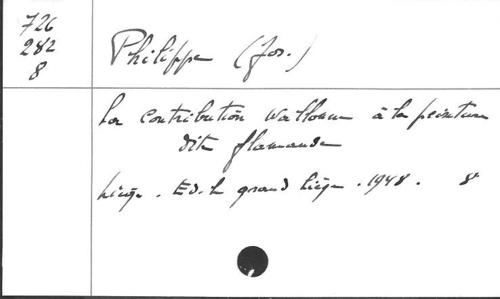 726
282
8
Philippe (Jos.)
La contribution wallonne à la peinture
dite flamande
Liège. Ed. le grand Liège. 1948. 8°